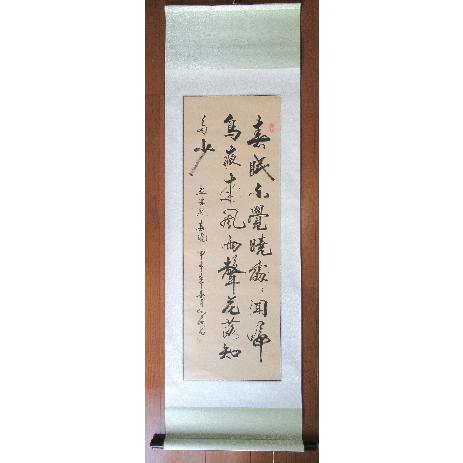 春眠不覺曉處々聞啼
鳥夜來風雨聲花落知
多少
孟浩然春曉 甲午年